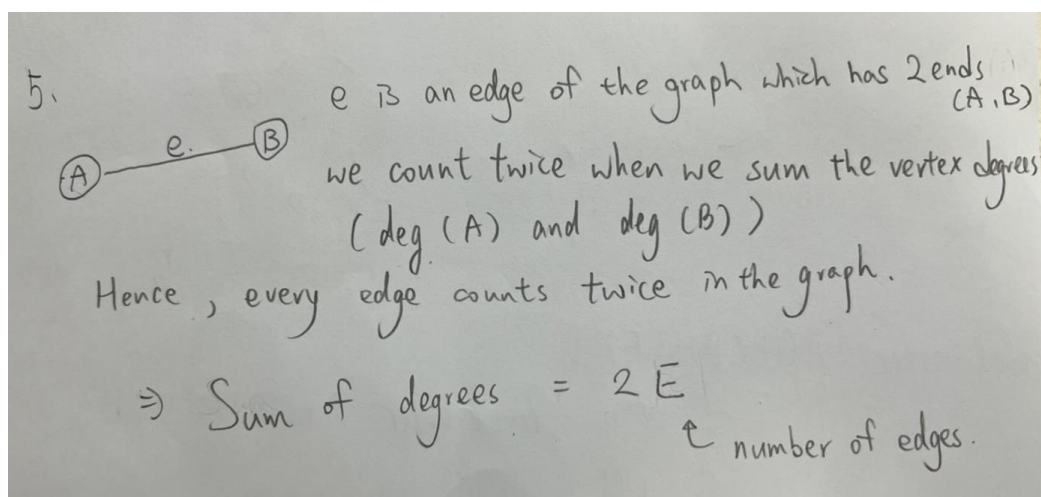 5.
e is an edge of the graph which has 2 ends
(A, B)
A e. B
we count twice when we sum the vertex degrees
(deg (A) and deg (B))
Hence, every edge counts twice in the graph.
⇒ Sum of degrees = 2E
↑ number of edges.